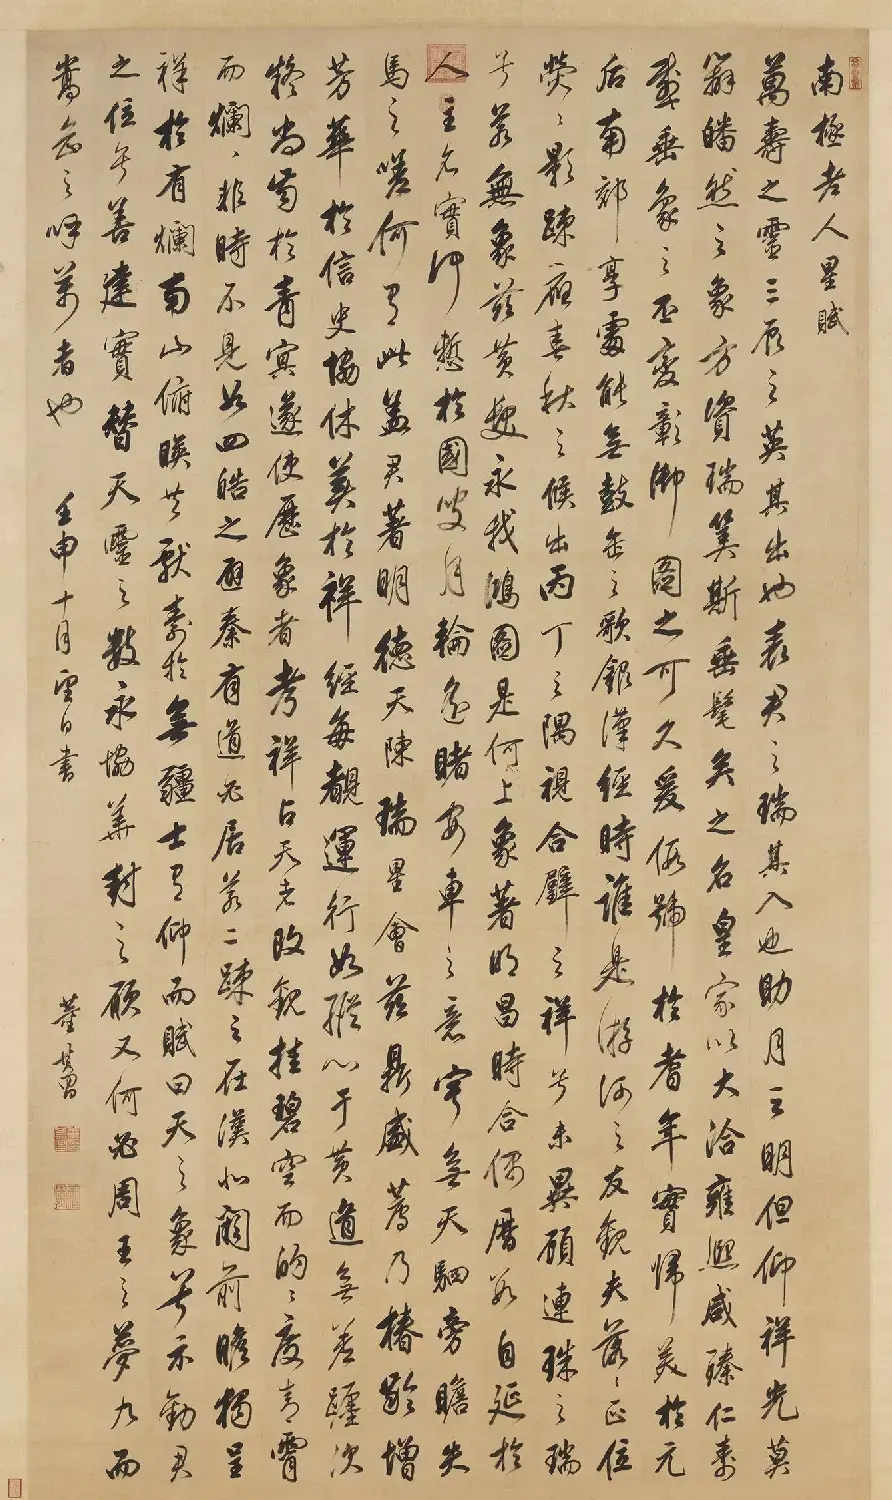 南極老人星賦
萬壽之靈三辰之英其出也表君之瑞其入也助月之明但仰祥光莫
辨皤然之象方資瑞筭斯垂髦矣之名皇家以大洽雍熙咸臻仁壽
感垂象之丕變彰御圖之可久爰假號於耆年實歸美於元
后南郊享處能無鼓缶之歌銀漢經時誰是游河之友觀夫落〻正位
熒〻影疎應春秋之候出丙丁之隅視合璧之祥兮未異顧連珠之瑞
兮若無象茲黃髮永我鴻圖是何上象著明昌時合偶曆數自延於
人主名實仰慙於國叟月輪迥睹安車之意寧無天駟旁瞻失
馬之嗟何有此蓋君著明德天陳瑞星會茲鼎盛薦乃椿齡增
芳華於信史協休美於祥經每覩運行如縱心于黃道無差躔次
疑尚齒於青冥遂使歷象者考祥占天者改觀挂碧空而的〻度青霄
而爛〻非時不見如四皓之避秦有道必居若二疎之在漢北闕前瞻獨呈
祥於有爛南山俯暎共獻壽於無疆士有仰而賦曰天之象兮示勸君
之位兮善建實贊天靈之數永協華封之願又何必周王之夢九而
嵩岳之呼萬者也 壬申十月望日書 董其昌